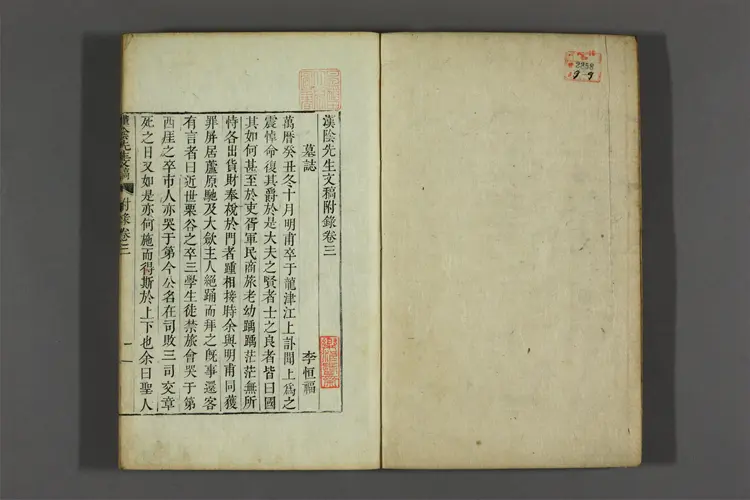 漢陰先生文稿附錄卷三
墓誌 李恒福
萬曆癸丑冬十月明甫卒于龍津江上訃聞上為之
震悼命復其爵於是大夫之賢者士之良者皆曰國
其如何甚至於吏胥軍民商旅老幼踽踽茫茫無所
恃各出貨財奉梲於門者踵相接時余與明甫同獲
罪屏居蘆原馳及大斂主人絕踊而拜之既事還客
有言者曰近世栗谷之卒三學生徒禁旅會哭于第
西崖之卒市人亦哭于第今公名在司敗三司交章
死之日又如是亦何施而得斯於上下也余曰聖人
漢陰先生文稿 附錄卷三 一
2898
9-9